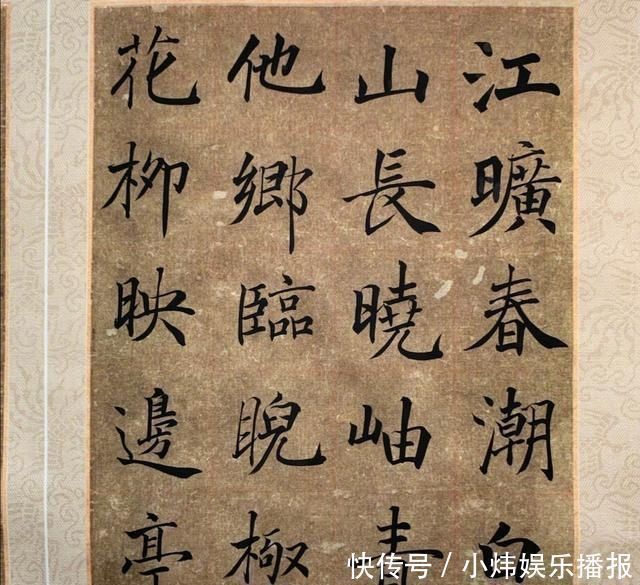 江曠春潮白
山長曉岫青
他鄉臨睨極
花柳映邊亭
快传号 / 小炜娱乐播报